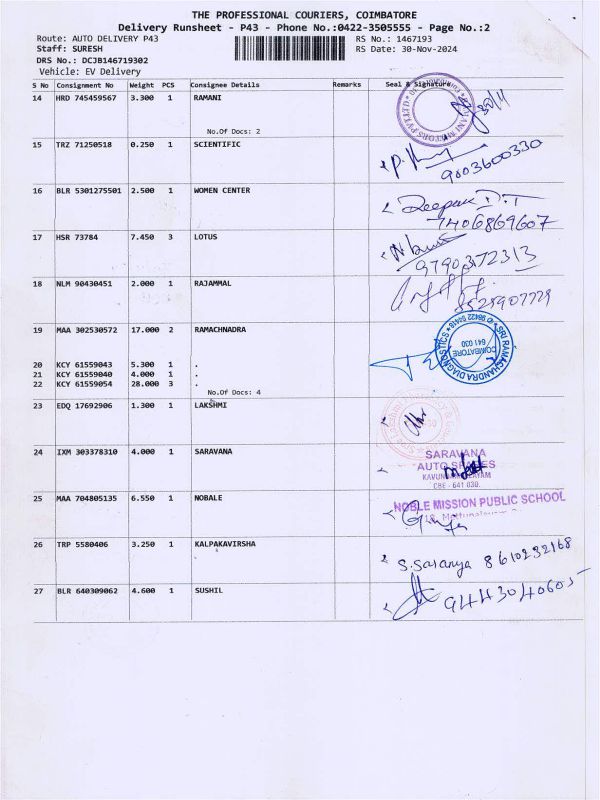 THE PROFESSIONAL COURIERS, COIMBATORE
Delivery Runsheet - P43 - Phone No.:0422-3505555 - Page No.:2
Route: AUTO DELIVERY P43
RS No.: 1467193
Staff: SURESH
RS Date: 30-Nov-2024
DRS No.: DCJB146719302
Vehicle: EV Delivery
S No Consignment No Weight PCS Consignee Details Remarks Seal & Signature
14 HRD 745459567 3.300 1 RAMANI
30/11
No.Of Docs: 2
15 TRZ 71250518 0.250 1 SCIENTIFIC
9003600330
16 BLR 5301275501 2.500 1 WOMEN CENTER
Deepak D.T
7406869607
17 HSR 73784 7.450 3 LOTUS
9790372313
18 NLM 90430451 2.000 1 RAJAMMAL
8525907729
19 MAA 302530572 17.000 2 RAMACHNADRA
SRI RAMACHANDRA DIAGNOSTICS
COIMBATORE
641 030
20 KCY 61559043 5.300 1 .
21 KCY 61559040 4.000 1 .
22 KCY 61559054 28.000 3 .
No.Of Docs: 4
23 EDQ 17692906 1.300 1 LAKSHMI
24 IXM 303378310 4.000 1 SARAVANA
SARAVANA
AUTO SPARES
CBE - 641 030.
25 MAA 704805135 6.550 1 NOBALE
NOBLE MISSION PUBLIC SCHOOL
26 TRP 5580406 3.250 1 KALPAKAVIRSHA
S.Saranya 8610232168
27 BLR 640309062 4.600 1 SUSHIL
9443040605